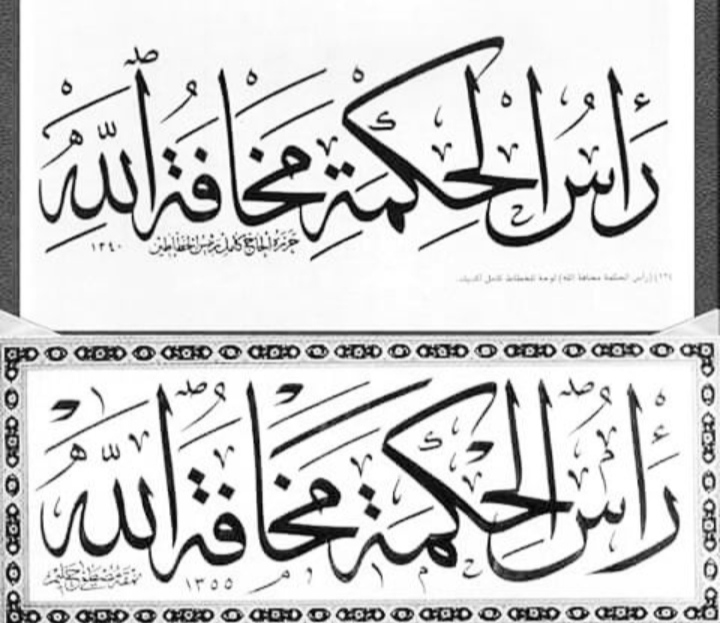 رَأْسُ الْحِكْمَةِ مَخَافَةُ اللّٰهِ
حرره الحاج كامل رئيس الخطاطين ١٣٤٠
(رأس الحكمة مخافة الله) لوحة للخطاط كامل آكديك.
رَأْسُ الْحِكْمَةِ مَخَافَةُ اللّٰهِ
نمقه مصطفى حليم ١٣٥٥